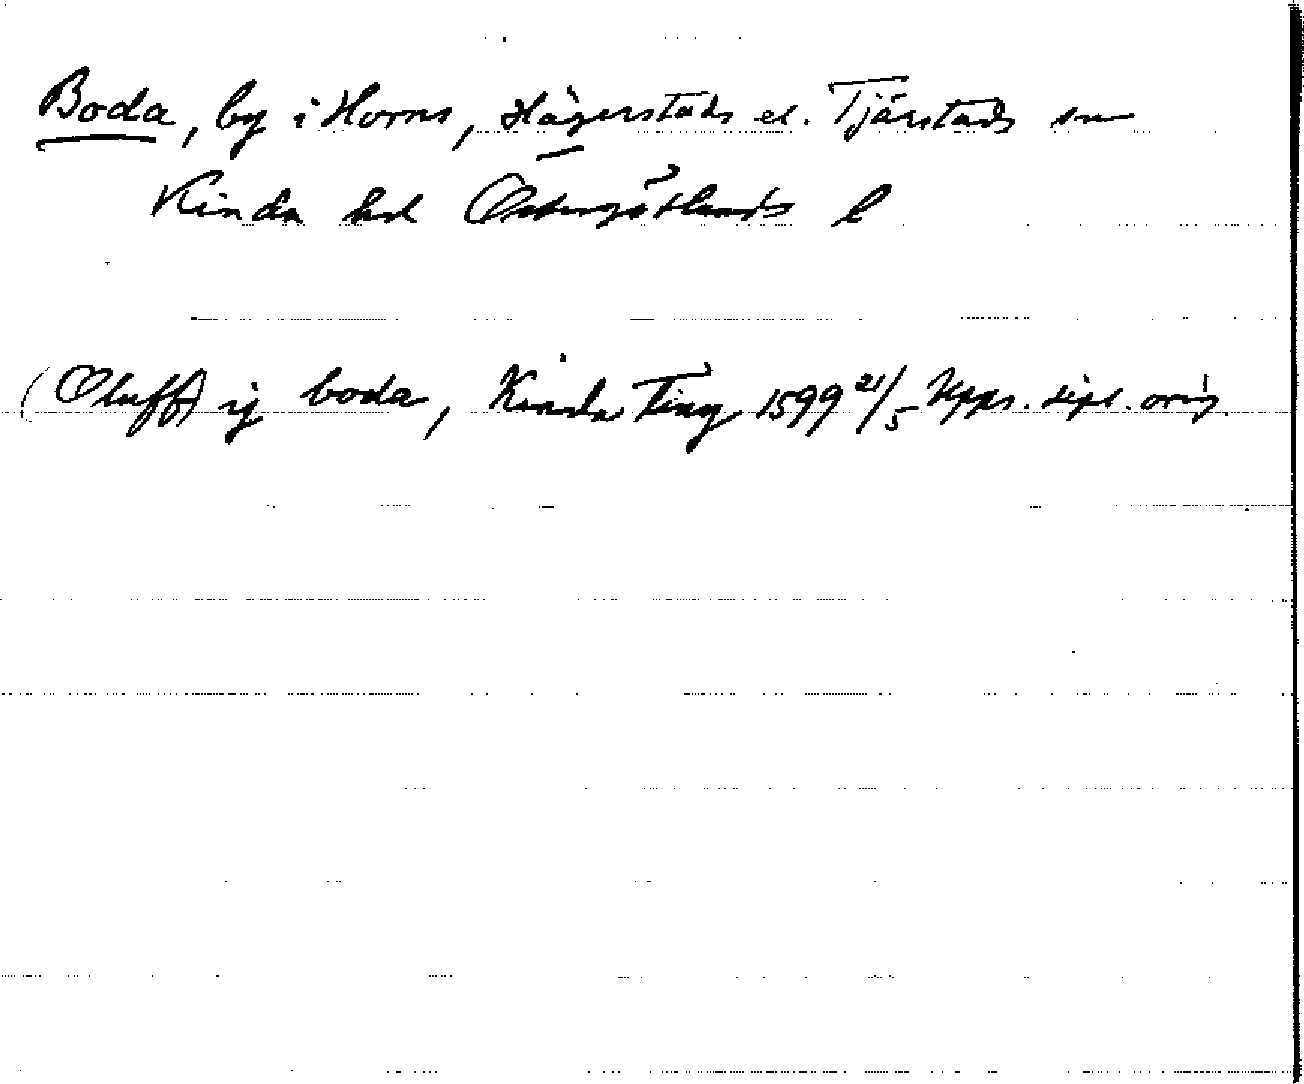 Boda, by i Horns, Hägerstads el. Tjärstads sn
Kinda hd Östergötlands l
(Oluff) ij boda, Kinda Ting 1599 21/5 Upps. dipl. orig.